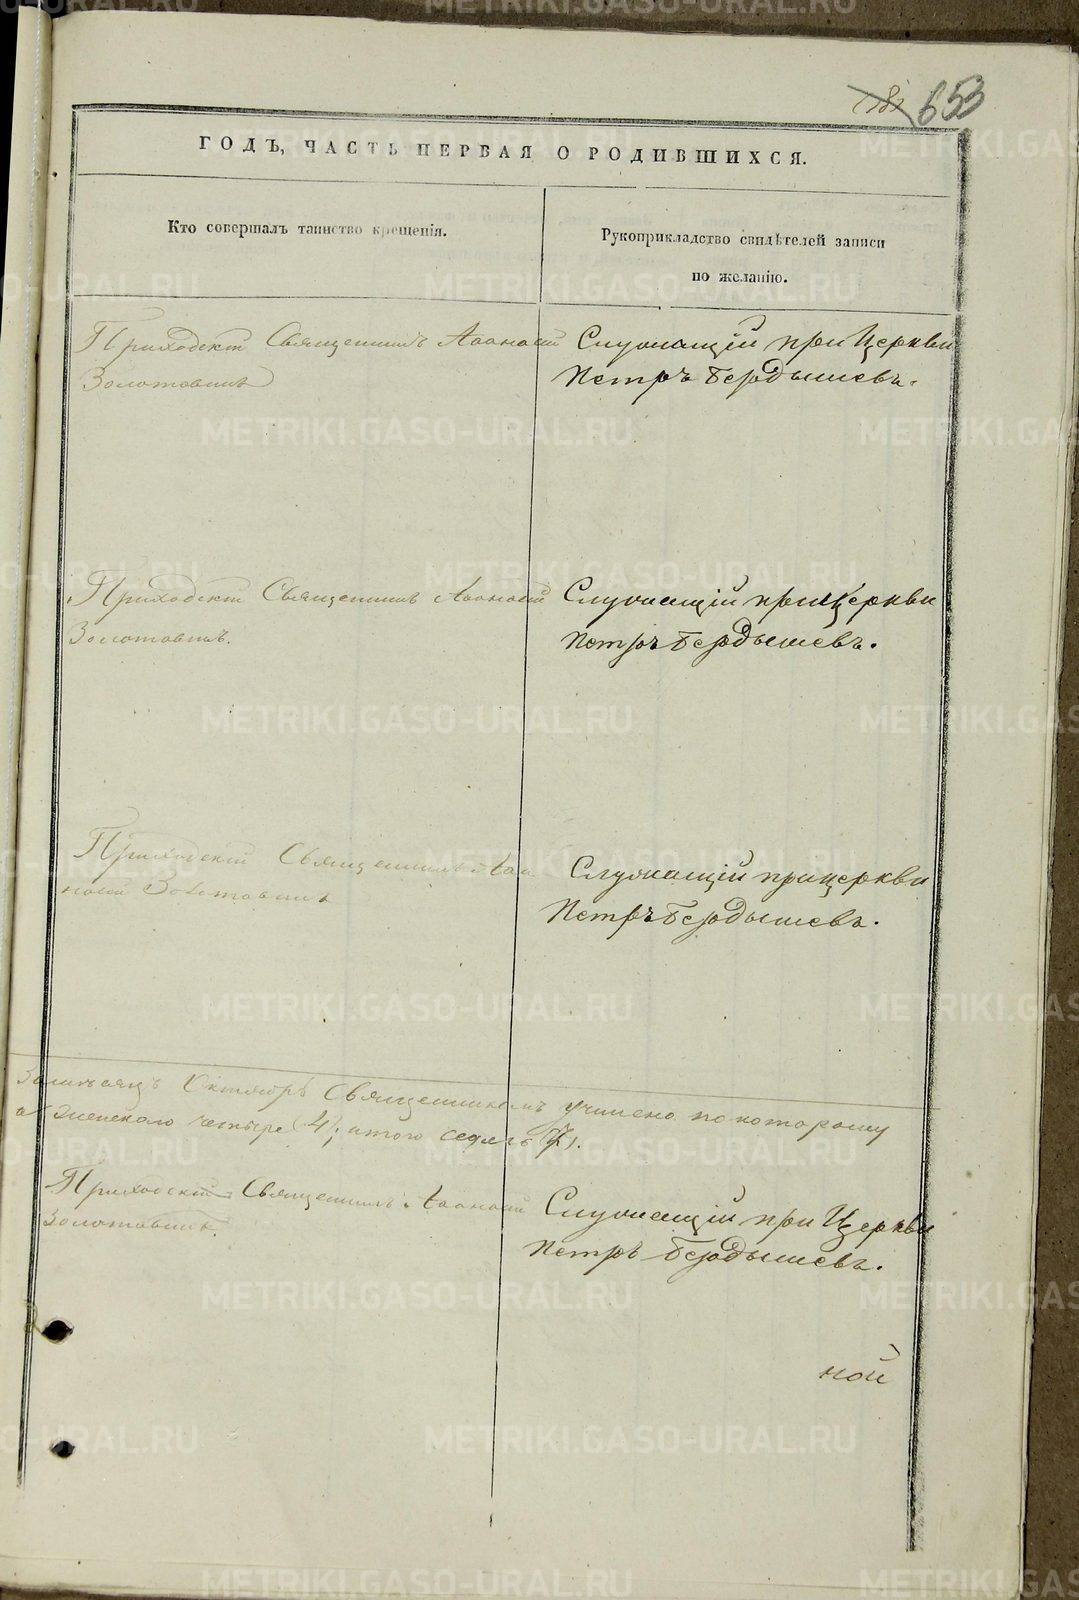 653
ГОДЪ, ЧАСТЬ ПЕРВАЯ О РОДИВШИХСЯ.
Кто совершалъ таинство крещенія.
Рукоприкладство свидѣтелей записи
по желанію.
Приходскій Священникъ Аѳонасій
Золотавинъ
Служащій при Церкви
Петръ Бердышевъ.
Приходскій Священникъ Аѳонасій
Золотавинъ.
Служащій при Церкви
Петръ Бердышевъ.
Приходскій Священникъ Аѳо
насій Золотавинъ
Служащій при церкви
Петръ Бердышевъ.
Октябрь Священникомъ учинено по которому
женскаго четыре (4), итого седмь (7).
Приходскій Священникъ Аѳонасій
Золотавинъ
Служащій при Церкви
Петръ Бердышевъ.
ной
METRIKI.GASO-URAL.RU